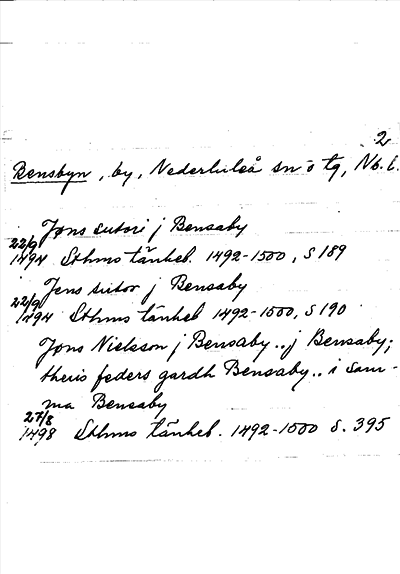 2
Bensbyn, by, Nederluleå sn o tg, Nb. l.
Jøns sutori j Bensaby
22/9 1494 Sthms tänkeb. 1492-1500, S 189
Jens sutor j Bensaby
22/9 1494 Sthms tänkeb 1492-1500, S 190
Jøns Nielsson j Bensaby .. j Bensaby;
theris feders gardh Bensaby .. i sam-
ma Bensaby
27/8 1498 Sthms tänkeb. 1492-1500 S. 395